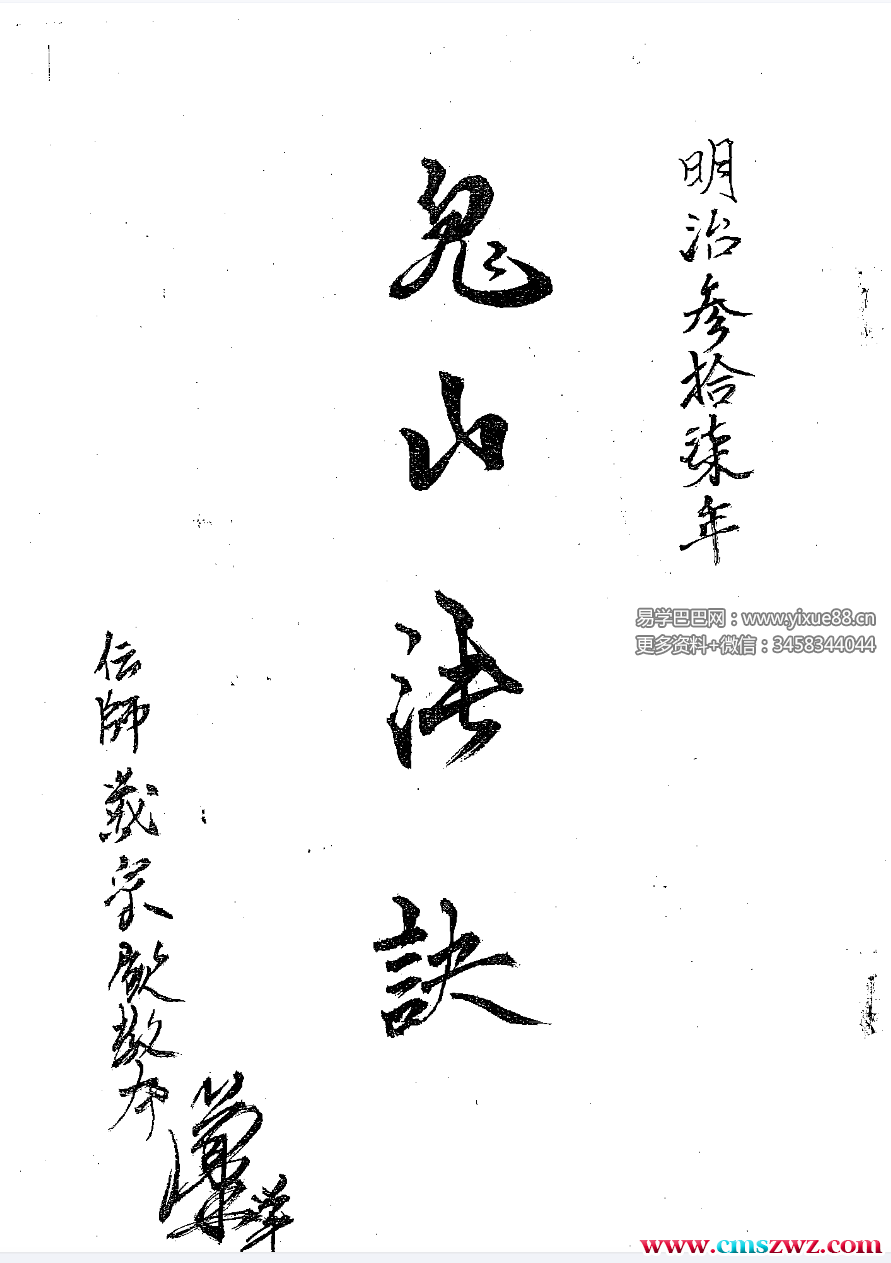 明治参拾柒年
鬼山法訣
伝師戴宗殿教本
易学巴巴网：www.yixue88.cn
更多资料+微信：3458344044
www.cmszwz.com